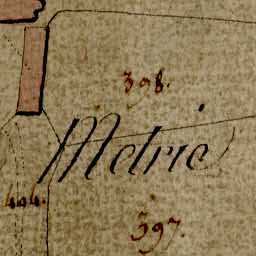 398.
Metrie
404.
397.